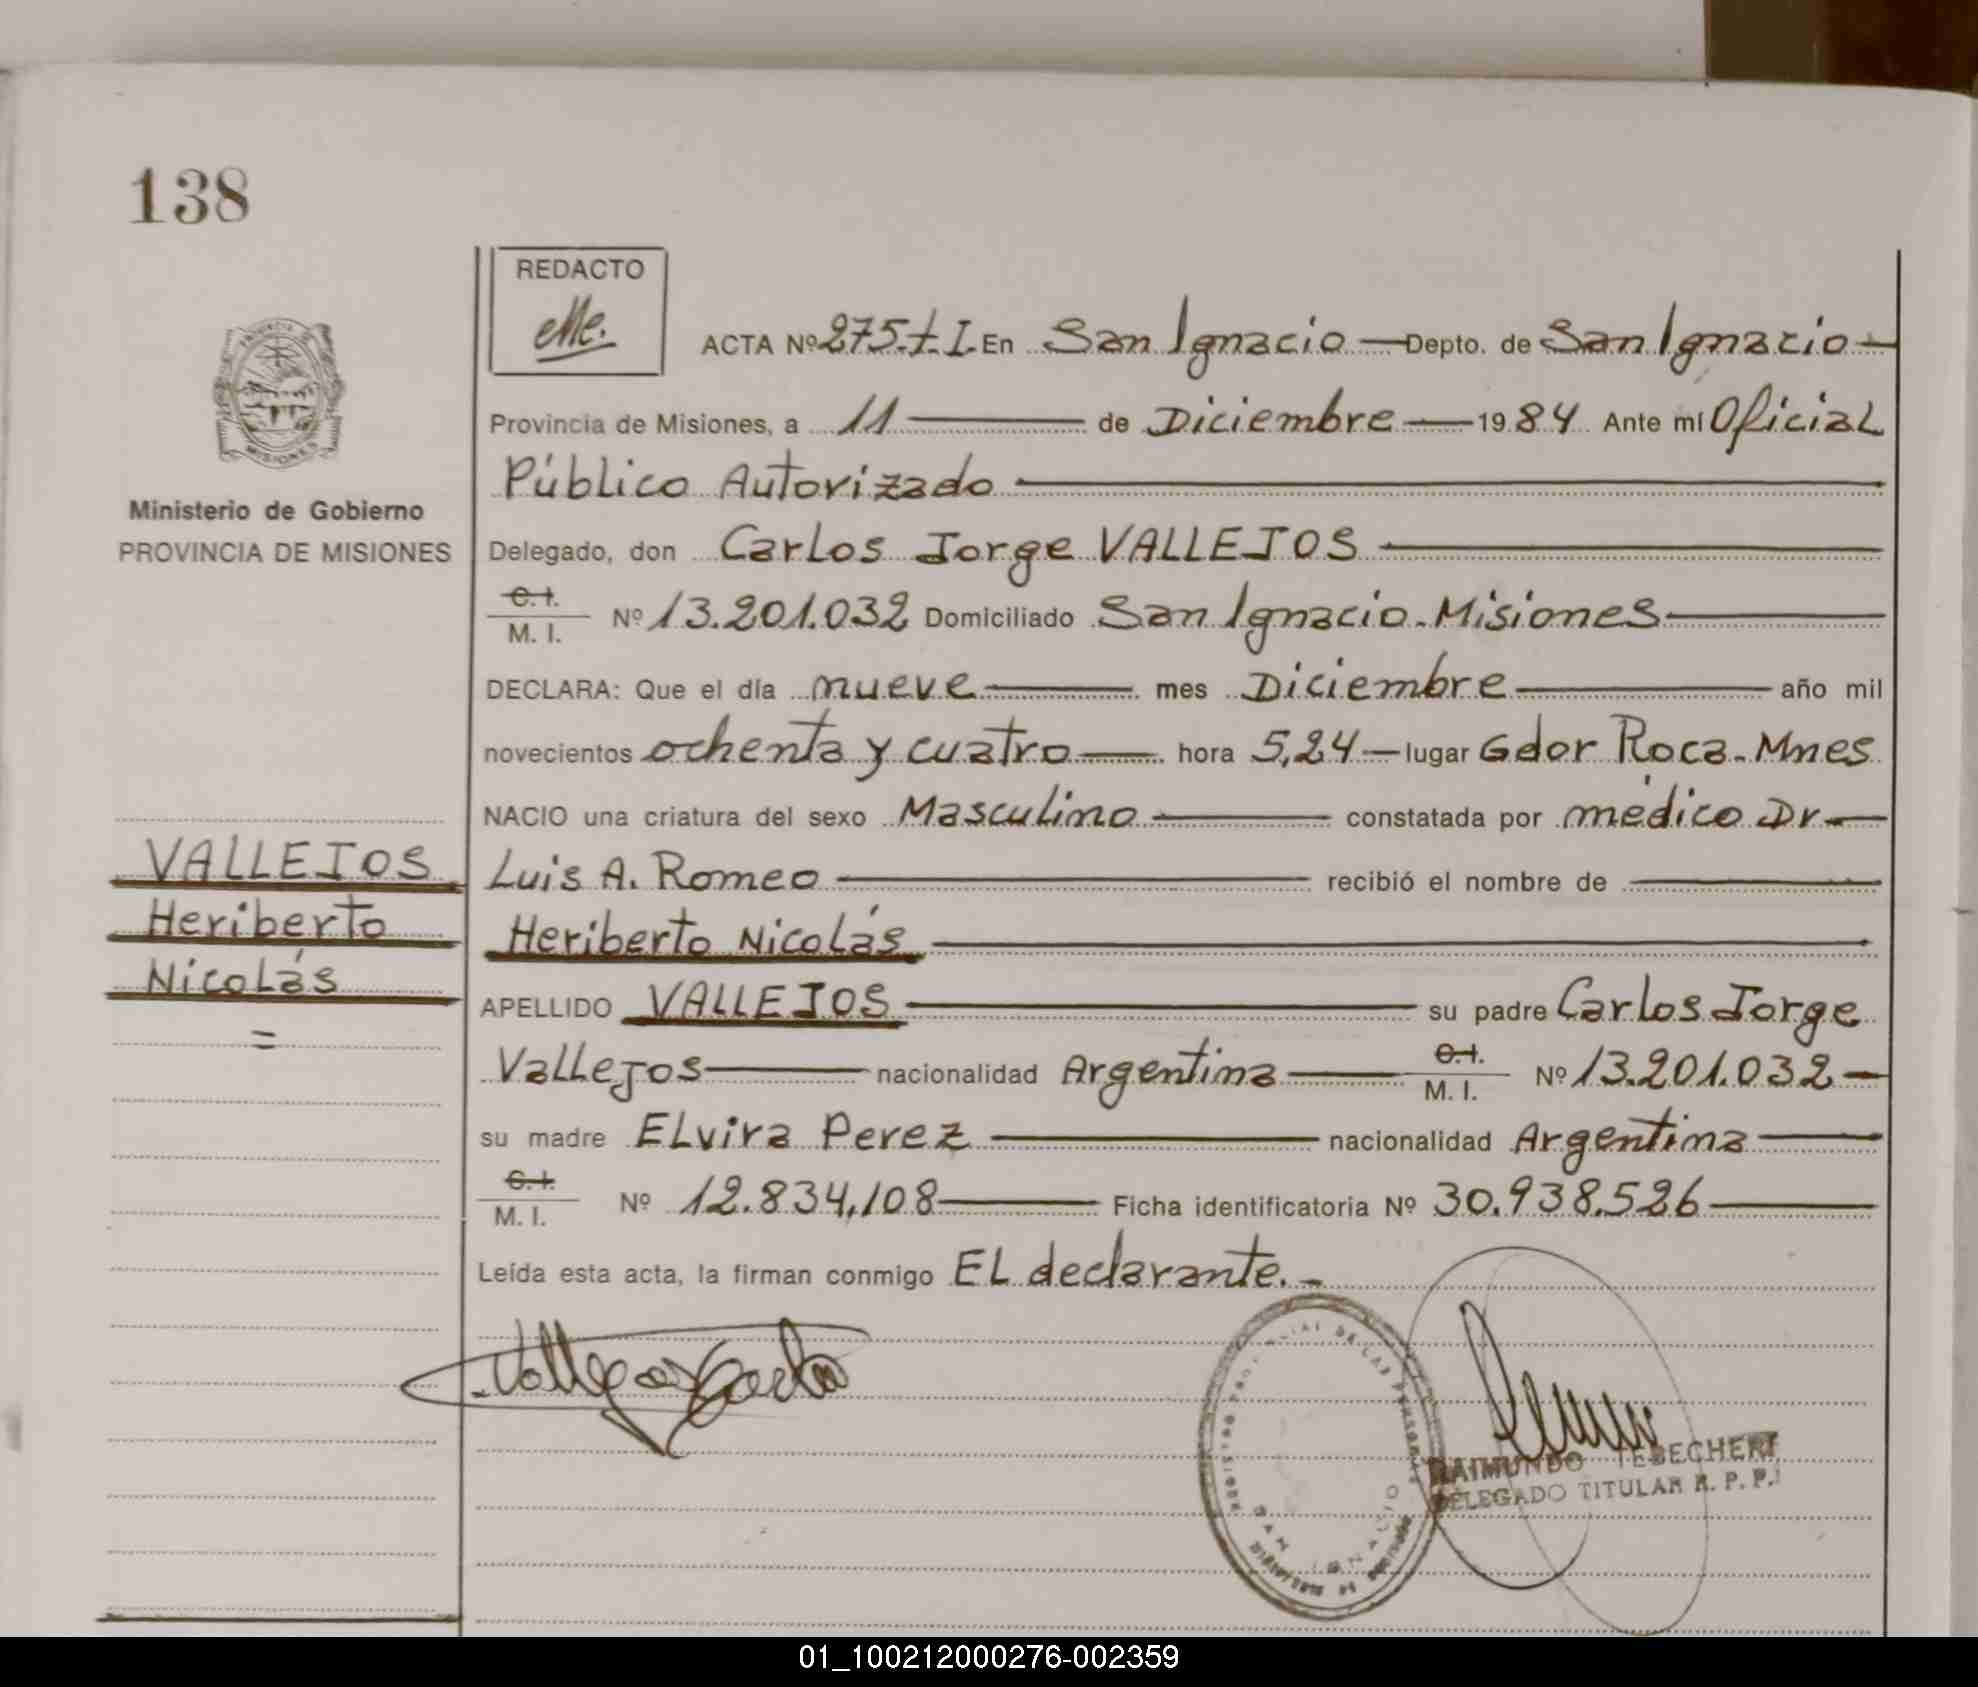 138
REDACTO
ACTA Nº 275.t.I. En San Ignacio — Depto. de San Ignacio —
Provincia de Misiones, a 11 — de Diciembre — 1984 Ante mí Oficial
Público Autorizado —
Ministerio de Gobierno
PROVINCIA DE MISIONES
Delegado, don Carlos Jorge VALLEJOS —
C. I.
M. I. Nº 13.201.032 Domiciliado San Ignacio - Misiones —
DECLARA: Que el día nueve — mes Diciembre — año mil
novecientos ochenta y cuatro — hora 5,24 — lugar Gdor Roca - Mnes
NACIO una criatura del sexo Masculino — constatada por médico Dr —
VALLEJOS
Luis A. Romeo — recibió el nombre de —
Heriberto
Heriberto Nicolás —
Nicolás
=
APELLIDO VALLEJOS — su padre Carlos Jorge
Vallejos — nacionalidad Argentina — C. I.
M. I. Nº 13.201.032 —
su madre Elvira Perez — nacionalidad Argentina —
C. I.
M. I. Nº 12.834,108 — Ficha identificatoria Nº 30.938.526 —
Leída esta acta, la firman conmigo El declarante. -
DE LAS PERSONAS
SAN IGNACIO
RAIMUNDO TEBECHERI
DELEGADO TITULAR R. P. P.
01_100212000276-002359